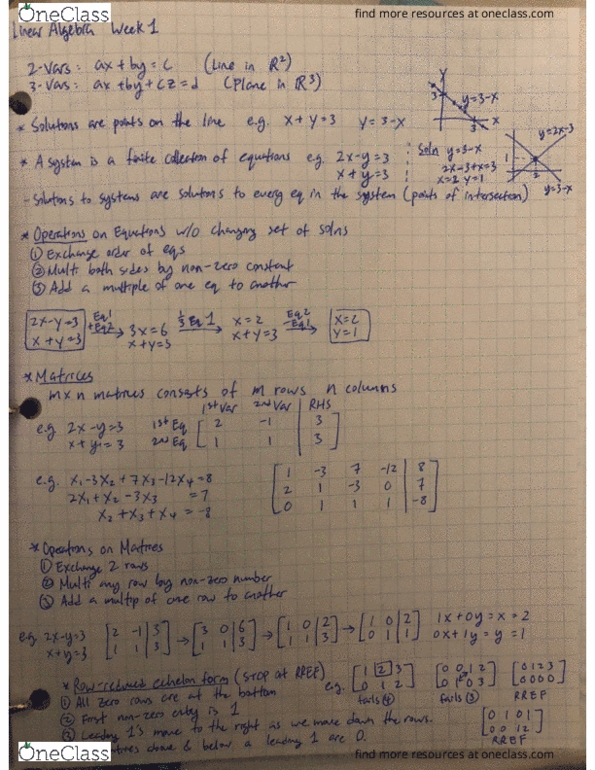 OneClass
find more resources at oneclass.com
Linear Algebra Week 1
2-Vars: ax + by = c (Line in R²)
3-Vars: ax + by + cz = d (Plane in R³)
Y
3
y=3-x
3
X
* Solutions are points on the line e.g. x + y = 3 y = 3-x
* A system is a finite collection of equations e.g. 2x-y=3
x+y=3
Soln y=3-x
2x-3+x=3
x=2 y=1
y=2x-3
1
2
y=3-x
- Solutions to systems are solutions to every eq in the system (points of intersection)
* Operations on Equations w/o changing set of solns
① Exchange order of eqs
② Mult both sides by non-zero constant
③ Add a multiple of one eq to another
2x-y=3
x+y=3
Eq1
+Eq2
→ 3x=6
x+y=3
⅓ Eq 1
→ x=2
x+y=3
Eq2
-Eq1
→ x=2
y=1
* Matrices
m×n matrices consists of m rows n columns
1st Var 2nd Var RHS
e.g. 2x-y=3 1st Eq [ 2 -1 | 3 ]
x+y=3 2nd Eq [ 1 1 | 3 ]
e.g. x₁-3x₂+7x₃-12x₄=8 [ 1 -3 7 -12 | 8 ]
2x₁+x₂-3x₃ =7 [ 2 1 -3 0 | 7 ]
x₂+x₃+x₄=-8 [ 0 1 1 1 | -8 ]
* Operations on Matrices
① Exchange 2 rows
② Multi any row by non-zero number
③ Add a multip of one row to another
e.g. 2x-y=3 [ 2 -1 | 3 ] → [ 3 0 | 6 ] → [ 1 0 | 2 ] → [ 1 0 | 2 ] 1x+0y=x=2
x+y=3 [ 1 1 | 3 ] [ 1 1 | 3 ] [ 1 1 | 3 ] [ 0 1 | 1 ] 0x+1y=y=1
* Row-reduced echelon form (STOP at RREF)
① All zero rows are at the bottom
② First non-zero entry is 1
③ Leading 1's move to the right as we move down the rows.
above & below a leading 1 are 0.
e.g. [ 1 2 3 ]
[ 0 1 2 ]
fails ④
[ 0 0 1 2 ]
fails ③
[ 0 1 2 3 ]
[ 0 0 0 0 ]
RREF
[ 0 1 0 1 ]
[ 0 0 1 2 ]
RREF
OneClass
find more resources at oneclass.com